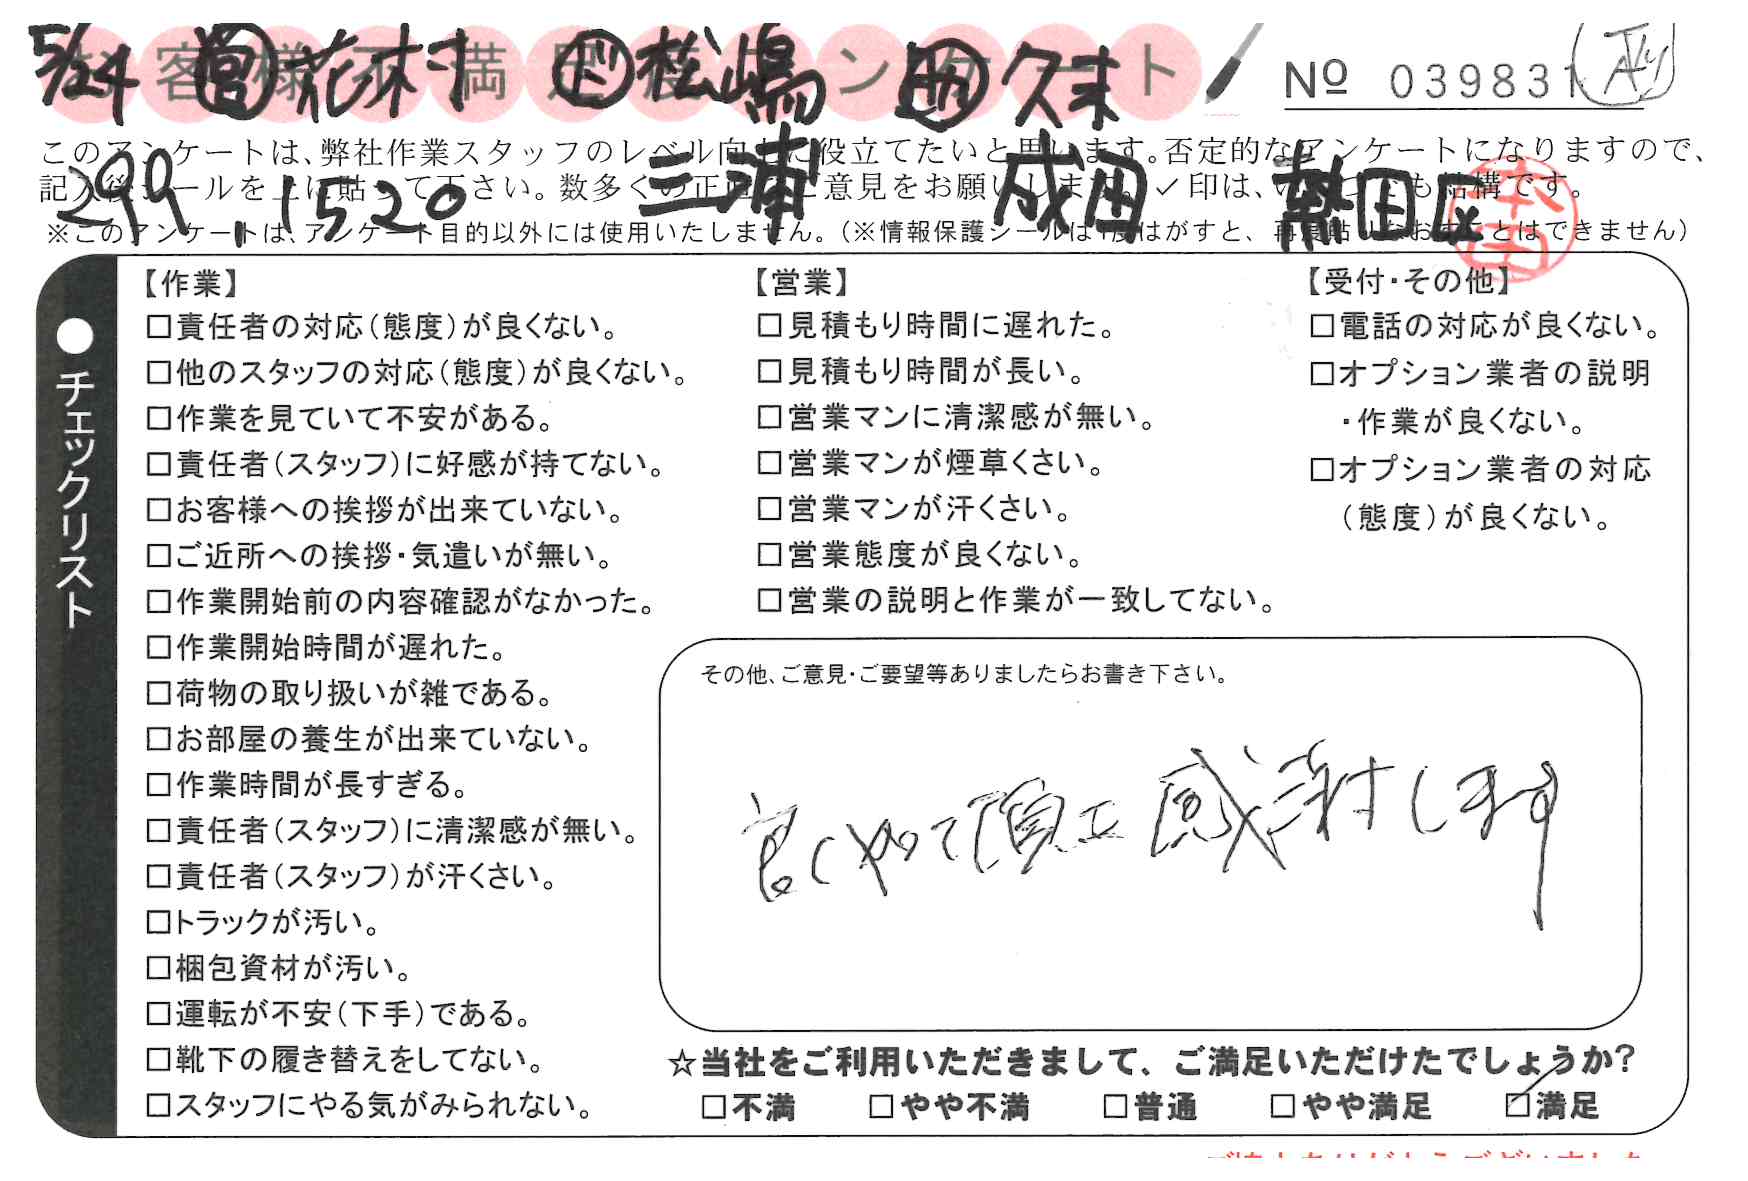 5/24 営 花村 ド 松嶋 助 久末
お客様不満足度アンケート
No 039831
299,1520 三浦 成田 熱田区
このアンケートは、弊社作業スタッフのレベル向上に役立てたいと思います。否定的なアンケートになりますので、
記入後シールを上に貼って下さい。数多くの正直なご意見をお願いします。✓印は、いくつでも結構です。
※このアンケートは、アンケート目的以外には使用いたしません。(※情報保護シールは1度はがすと、再度貼りなおすことはできません)
●チェックリスト
【作業】
□責任者の対応(態度)が良くない。
□他のスタッフの対応(態度)が良くない。
□作業を見ていて不安がある。
□責任者(スタッフ)に好感が持てない。
□お客様への挨拶が出来ていない。
□ご近所への挨拶・気遣いが無い。
□作業開始前の内容確認がなかった。
□作業開始時間が遅れた。
□荷物の取り扱いが雑である。
□お部屋の養生が出来ていない。
□作業時間が長すぎる。
□責任者(スタッフ)に清潔感が無い。
□責任者(スタッフ)が汗くさい。
□トラックが汚い。
□梱包資材が汚い。
□運転が不安(下手)である。
□靴下の履き替えをしてない。
□スタッフにやる気がみられない。
【営業】
□見積もり時間に遅れた。
□見積もり時間が長い。
□営業マンに清潔感が無い。
□営業マンが煙草くさい。
□営業マンが汗くさい。
□営業態度が良くない。
□営業の説明と作業が一致してない。
【受付・その他】
□電話の対応が良くない。
□オプション業者の説明
・作業が良くない。
□オプション業者の対応
(態度)が良くない。
その他、ご意見・ご要望等ありましたらお書き下さい。
良くやって頂エ感謝します
☆当社をご利用いただきまして、ご満足いただけたでしょうか?
□不満 □やや不満 □普通 □やや満足 ☑満足